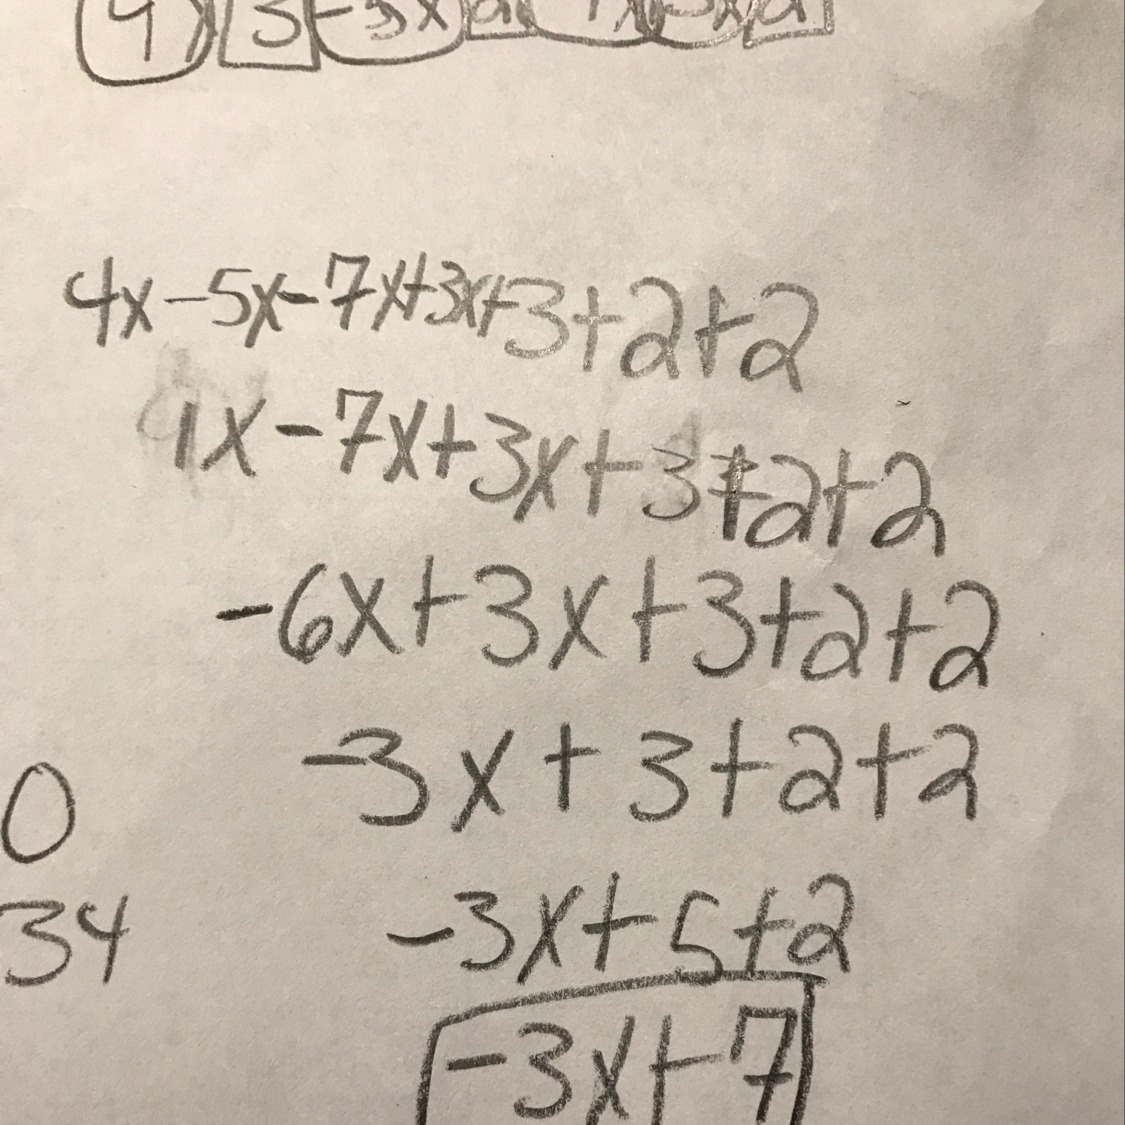 4x-5x-7x+3x+3+2+2
1x-7x+3x+3+2+2
-6x+3x+3+2+2
-3x+3+2+2
0
-3x+5+2
34
-3x+7